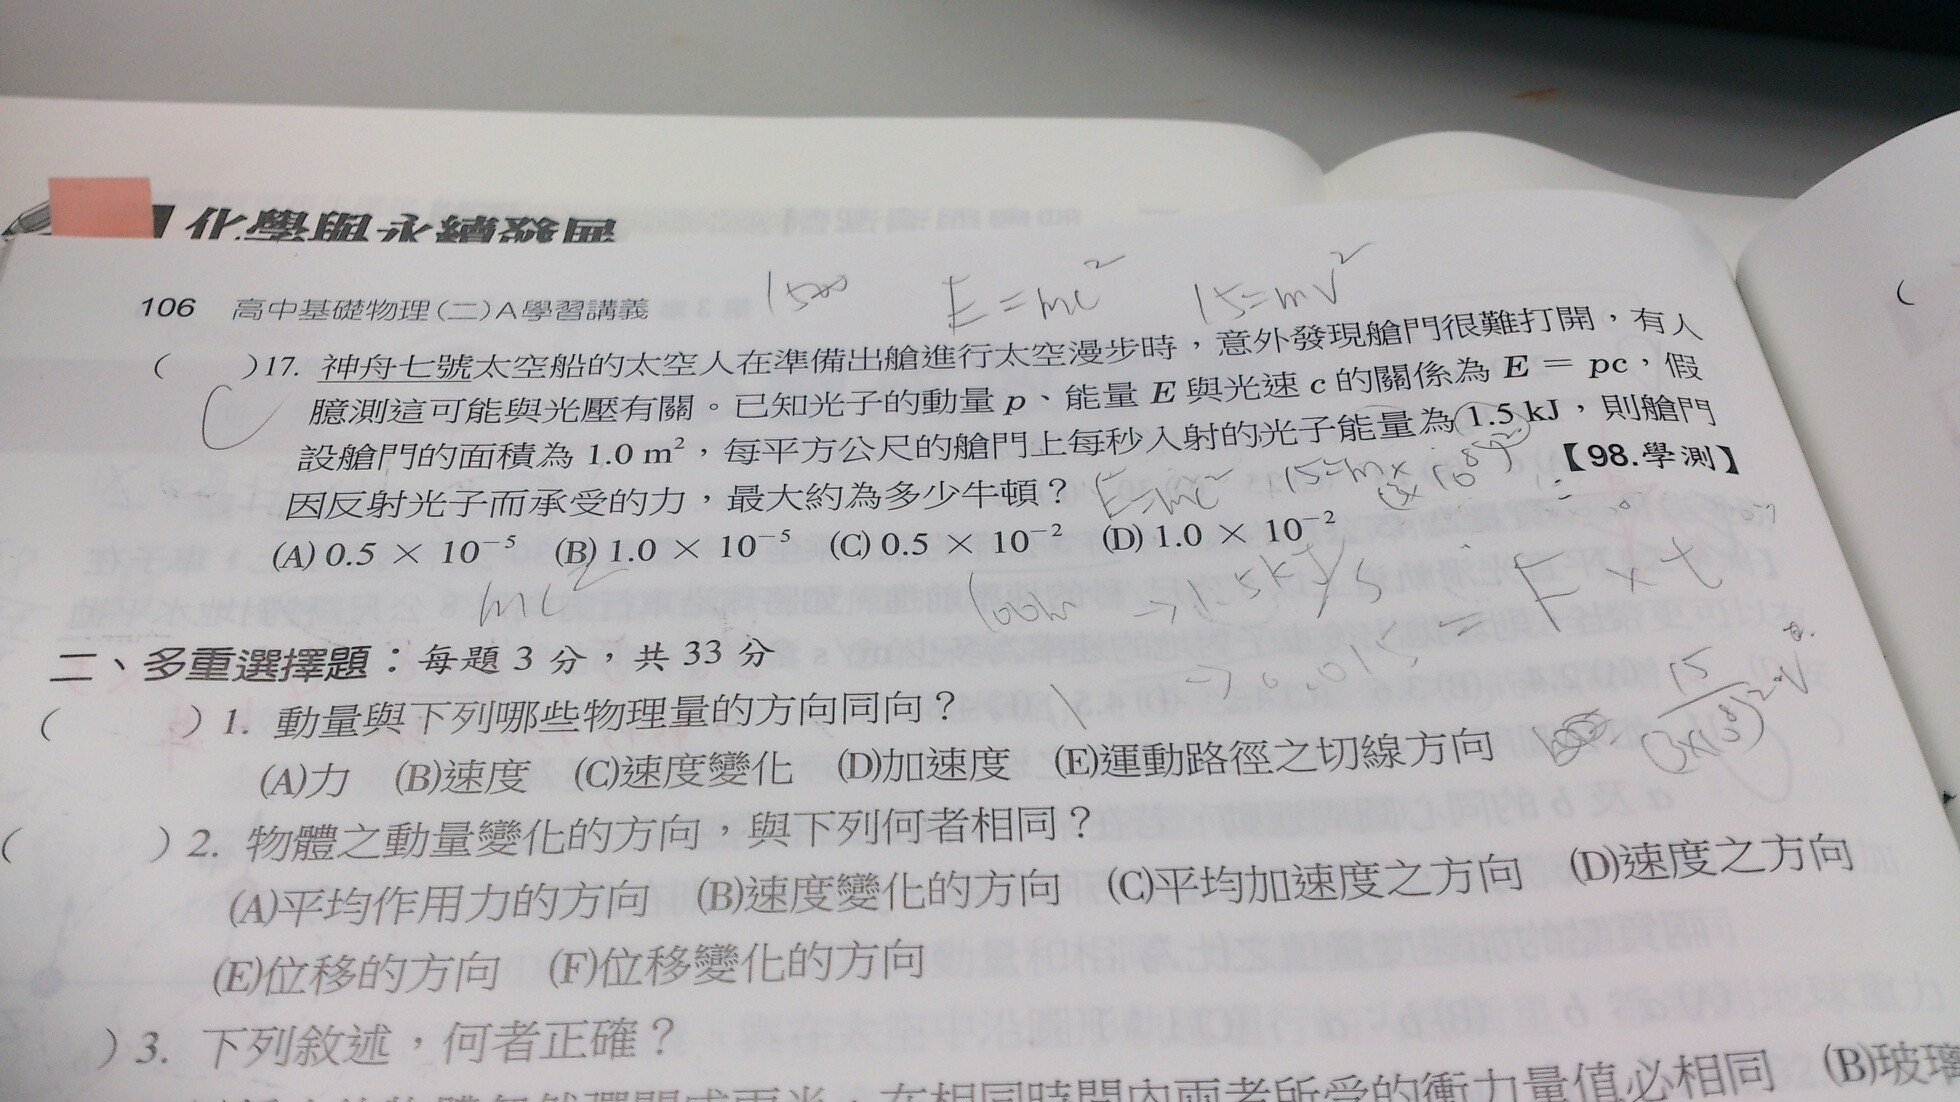 化學與永續發展
1500 E=mc² 15=mv²
106 高中基礎物理(二)A學習講義
( )17. 神舟七號太空船的太空人在準備出艙進行太空漫步時，意外發現艙門很難打開，有人
C
臆測這可能與光壓有關。已知光子的動量 p、能量 E 與光速 c 的關係為 E = pc，假
設艙門的面積為 1.0 m²，每平方公尺的艙門上每秒入射的光子能量為 1.5 kJ，則艙門
因反射光子而承受的力，最大約為多少牛頓？ 【98.學測】
E=mc²
(A) 0.5 × 10⁻⁵ (B) 1.0 × 10⁻⁵ (C) 0.5 × 10⁻² (D) 1.0 × 10⁻²
mc² → 1.5kJ/s = F×t
二、多重選擇題：每題 3 分，共 33 分
( ) 1. 動量與下列哪些物理量的方向同向？
(A)力 (B)速度 (C)速度變化 (D)加速度 (E)運動路徑之切線方向
( ) 2. 物體之動量變化的方向，與下列何者相同？
(A)平均作用力的方向 (B)速度變化的方向 (C)平均加速度之方向 (D)速度之方向
(E)位移的方向 (F)位移變化的方向
) 3. 下列敘述，何者正確？
在相同時間內兩者所受的衝力量值必相同 (B)玻璃